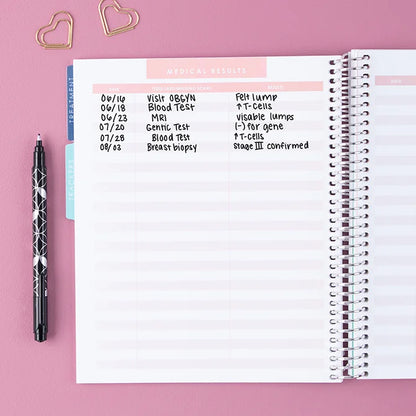 MEDICAL RESULTS
DATE
06/16 Visit OBGYN Felt lump
06/18 Blood Test ↑ T-cells
06/23 MRI Visable lumps
07/20 Gentic Test (-) for gene
07/28 Blood Test ↑ T-cells
08/03 Breast biopsy Stage III confirmed
TREATMENT
TRACKERS